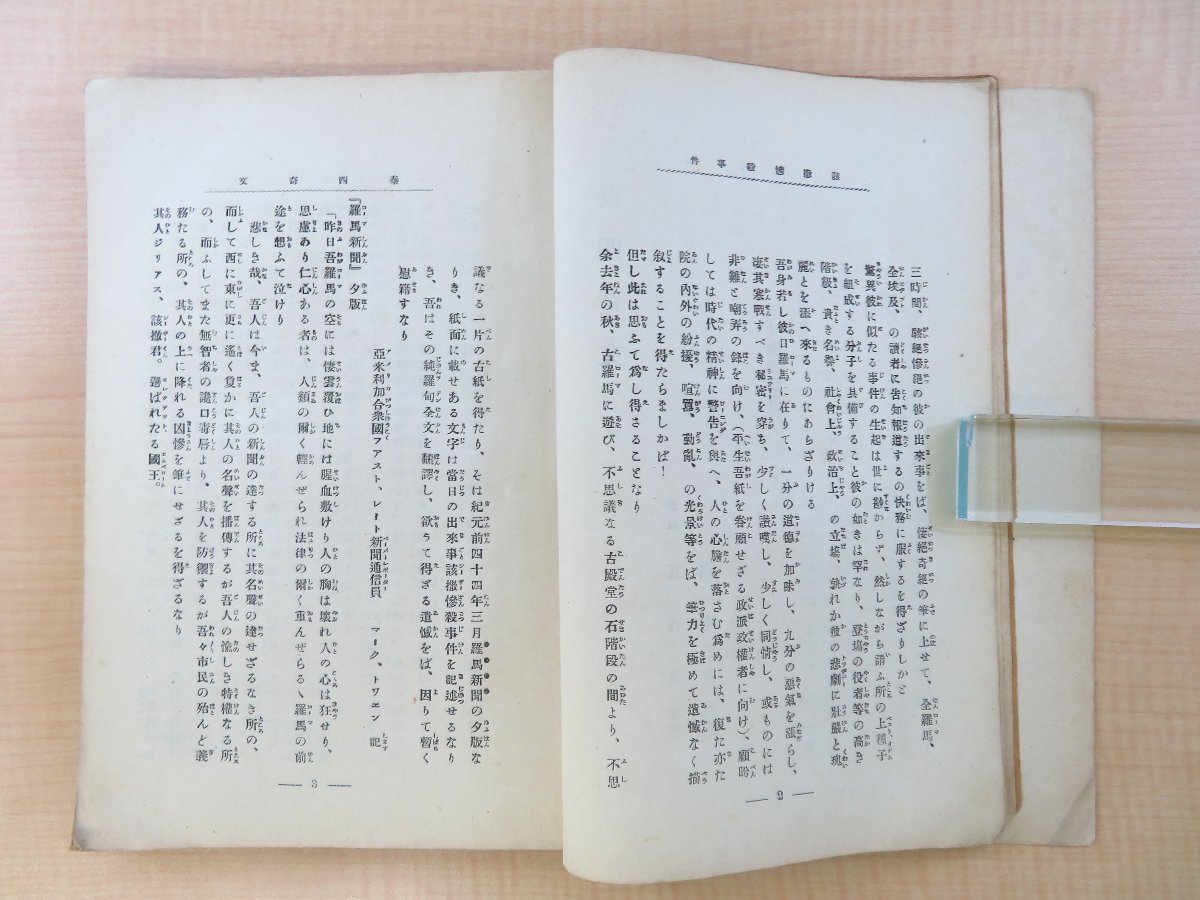 該撒慘殺事件
三時間、駭絕慘絕の彼の出來事をば、悽絕奇絕の筆に上せて、全羅馬、
全埃及、の讀者に告知報道するの快務に服するを得ざりしかと
驚異彼に似たる事件の生起は世に尠からず、然しながら謂ふ所の上程子
を組成する分子を具備すること彼の如きは罕なり、登場の役者等の高き
階級、貴き名譽、社會上、政治上、の立塲、孰れか彼の悲劇に壯嚴と瑰
麗とを添へ來るものにあらざりける
吾身若し彼日羅馬に在りて、一分の道德を加味し、九分の惡氣を漲らし、
凄其寒戰すべき秘密を穿ち、少しく讃嘆し、少しく同情し、或ものには
非難と嘲弄の鋒を向け、(平生吾紙を眷顧せざる政派政權者に向け)、顧盻
しては時代の精神に警告を與へ、人の心膽を落さむ爲めには、復た亦た
院の內外の紛擾、喧囂、動亂、の光景等をば、筆力を極めて遺憾なく描
叙することを得たらましかば!
但し此は思ふて爲し得さることなり
余去年の秋、古羅馬に遊び、不思議なる古殿堂の石階段の間より、不思
— 2 —
泰西奇文
議なる一片の古紙を得たり、そは紀元前四十四年三月羅馬新聞の夕版な
りき、紙面に載せある文字は當日の出來事該撒慘殺事件を記述せるなり
き、吾はその純羅甸全文を翻譯し、欲うて得ざる遺憾をば、因りて暫く
慰籍すなり
亞米利加合衆國フアスト、レート新聞通信員 マーク、トワエン 記
『羅馬新聞』夕版
「昨日吾羅馬の空には悽雲覆ひ地には腥血敷けり人の胸は壊れ人の心は狂せり、
思慮あり仁心ある者は、人類の爾く輕んぜられ法律の爾く重んぜらるゝ羅馬の前
途を想ふて泣けり
悲しき哉、吾人は今ま、吾人の新聞の達する所に其名聲の達せざるなき所の、
而して西に東に更に遙く敻かに其人の名聲を播傳するが吾人の愉しき特權なる所
の、而ふしてまた無智者の讒口毒唇より、其人を防禦するが吾々市民の殆んど義
務たる所の、其人の上に降れる凶慘を筆にせざるを得ざるなり
其人ジリアス、該撒君。選ばれたる國王。
— 3 —